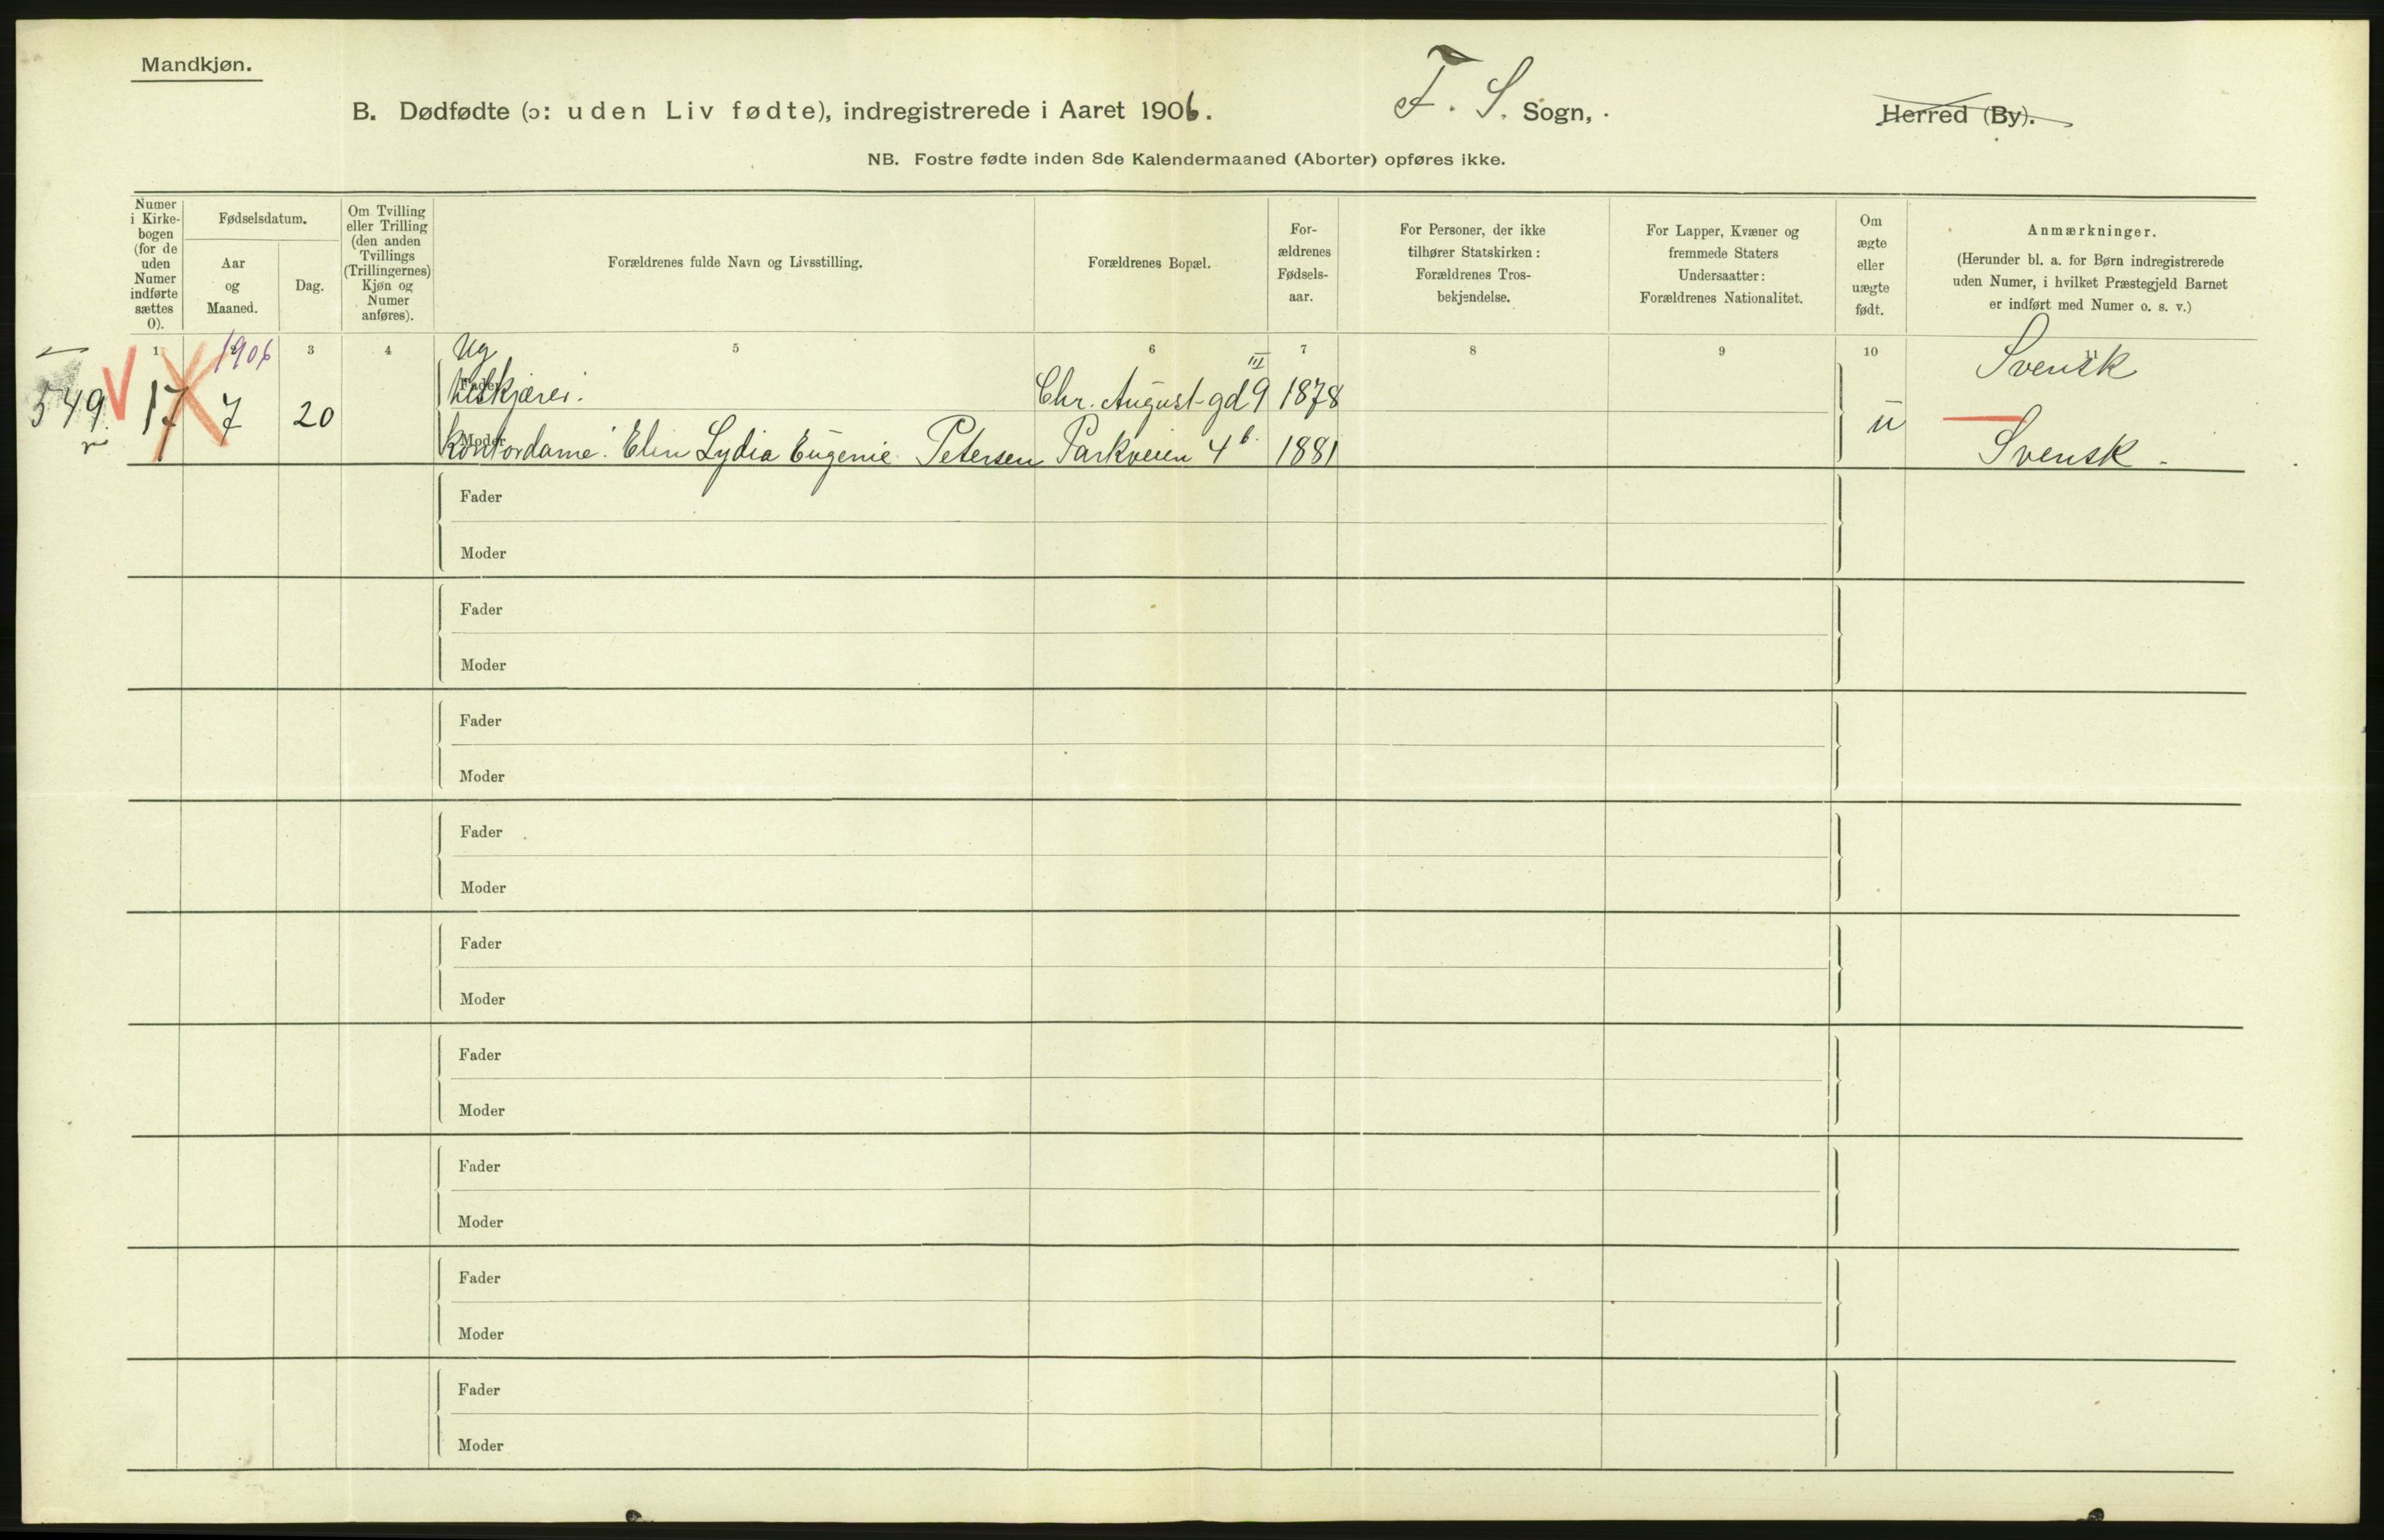 Mandkjøn.
B. Dødfødte (ɔ: uden Liv fødte), indregistrerede i Aaret 1906. F. S. Sogn, Herred (By).
NB. Fostre fødte inden 8de Kalendermaaned (Aborter) opføres ikke.
Numer i Kirkebogen (for de uden Numer indførte sættes 0).
Fødselsdatum.
Aar og Maaned.
Dag.
Om Tvilling eller Trilling (den anden Tvillings (Trillingernes) Kjøn og Numer anføres).
Forældrenes fulde Navn og Livsstilling.
Forældrenes Bopæl.
Forældrenes Fødselsaar.
For Personer, der ikke tilhører Statskirken: Forældrenes Trosbekjendelse.
For Lapper, Kvæner og fremmede Staters Undersaatter: Forældrenes Nationalitet.
Om ægte eller uægte født.
Anmærkninger.
(Herunder bl. a. for Børn indregistrerede uden Numer, i hvilket Præstegjeld Barnet er indført med Numer o. s. v.)
1 2 3 4 5 6 7 8 9 10 11
1906
Ug
Fader Chr. August gd 9 III 1878 Svensk
549 17 7 20 u
Moder Kontordame Elin Lydia Eugenie Petersen Parkveien 4 b. 1881 Svensk
Fader
Moder
Fader
Moder
Fader
Moder
Fader
Moder
Fader
Moder
Fader
Moder
Fader
Moder
Fader
Moder
Fader
Moder